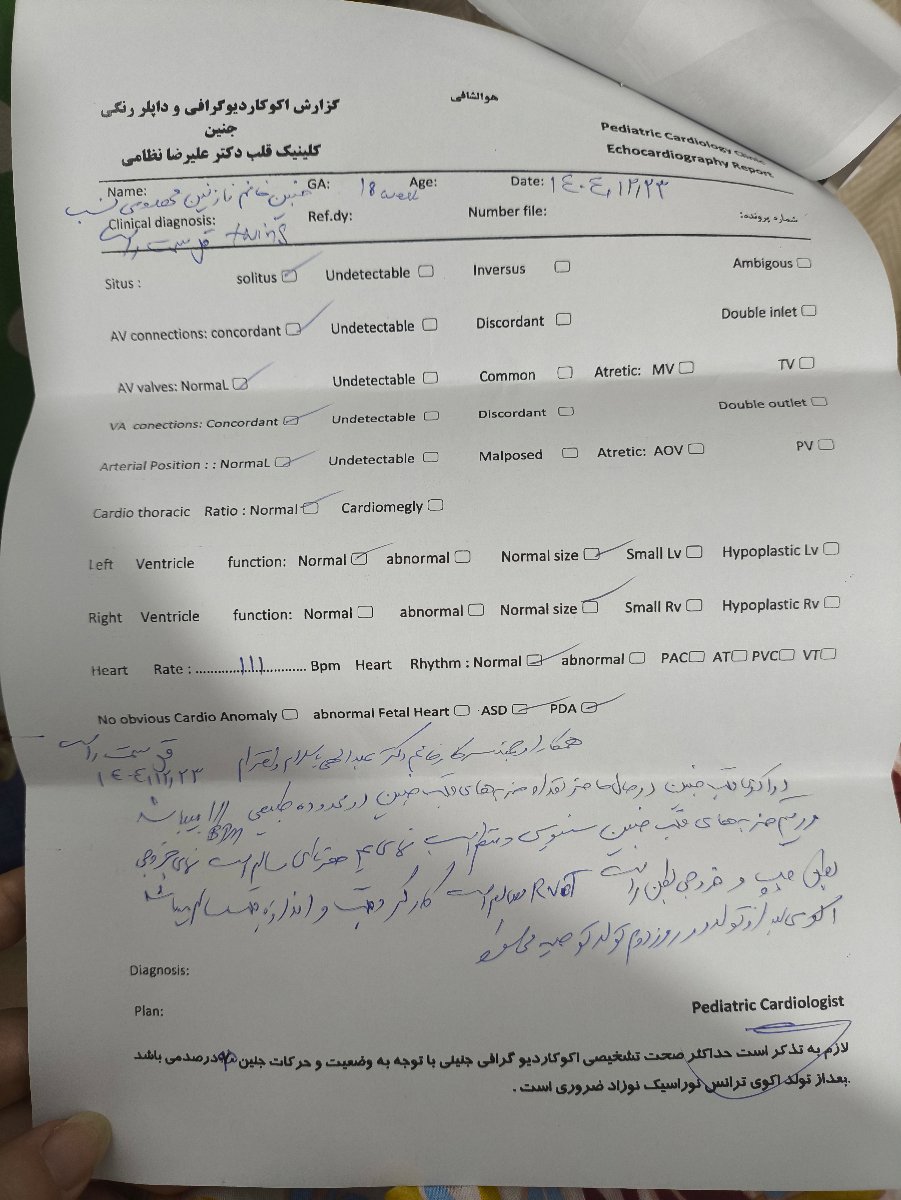 هوالشافی
گزارش اکوکاردیوگرافی و داپلر رنگی
جنین
کلینیک قلب دکتر علیرضا نظامی
Pediatric Cardiology Clinic
Echocardiography Report
Name: جنین خانم نازنین GA: 18 week Age: Date: ۱۴۰۴,۱۲,۲۳
Clinical diagnosis: twins قل سمت راست Ref.dy: Number file: شماره پرونده:
Situs : solitus Undetectable Inversus Ambigous
AV connections: concordant Undetectable Discordant Double inlet
AV valves: NormaL Undetectable Common Atretic: MV TV
VA conections: Concordant Undetectable Discordant Double outlet
Arterial Position : : NormaL Undetectable Malposed Atretic: AOV PV
Cardio thoracic Ratio : Normal Cardiomegly
Left Ventricle function: Normal abnormal Normal size Small Lv Hypoplastic Lv
Right Ventricle function: Normal abnormal Normal size Small Rv Hypoplastic Rv
Heart Rate : ......111...... Bpm Heart Rhythm : Normal abnormal PAC AT PVC VT
No obvious Cardio Anomaly abnormal Fetal Heart ASD PDA
همکار ارجمند سرکار خانم دکتر عبدالهی با سلام و احترام قل سمت راست
۱۴۰۴,۱۲,۲۳
در اکوی قلب جنین در حال حاضر تعداد ضربه های قلب جنین در محدوده طبیعی 111 میباشد
BPM
ریتم ضربه های قلب جنین سینوسی و منتظم است نمای ۴ حفره ای سالم است نمای خروجی
بطن چپ و خروجی بطن راست RVOT سالم است کارکرد قلب و اندازه قلب سالم میباشد
اکوی بعد از تولد در روز دوم تولد توصیه میشود
Diagnosis:
Plan:
Pediatric Cardiologist
لازم به تذکر است حداکثر صحت تشخیصی اکوکاردیو گرافی جلیلی با توجه به وضعیت و حرکات جلین درصدمی باشد
بعداز تولد اکوی ترانس توراسیک نوزاد ضروری است .